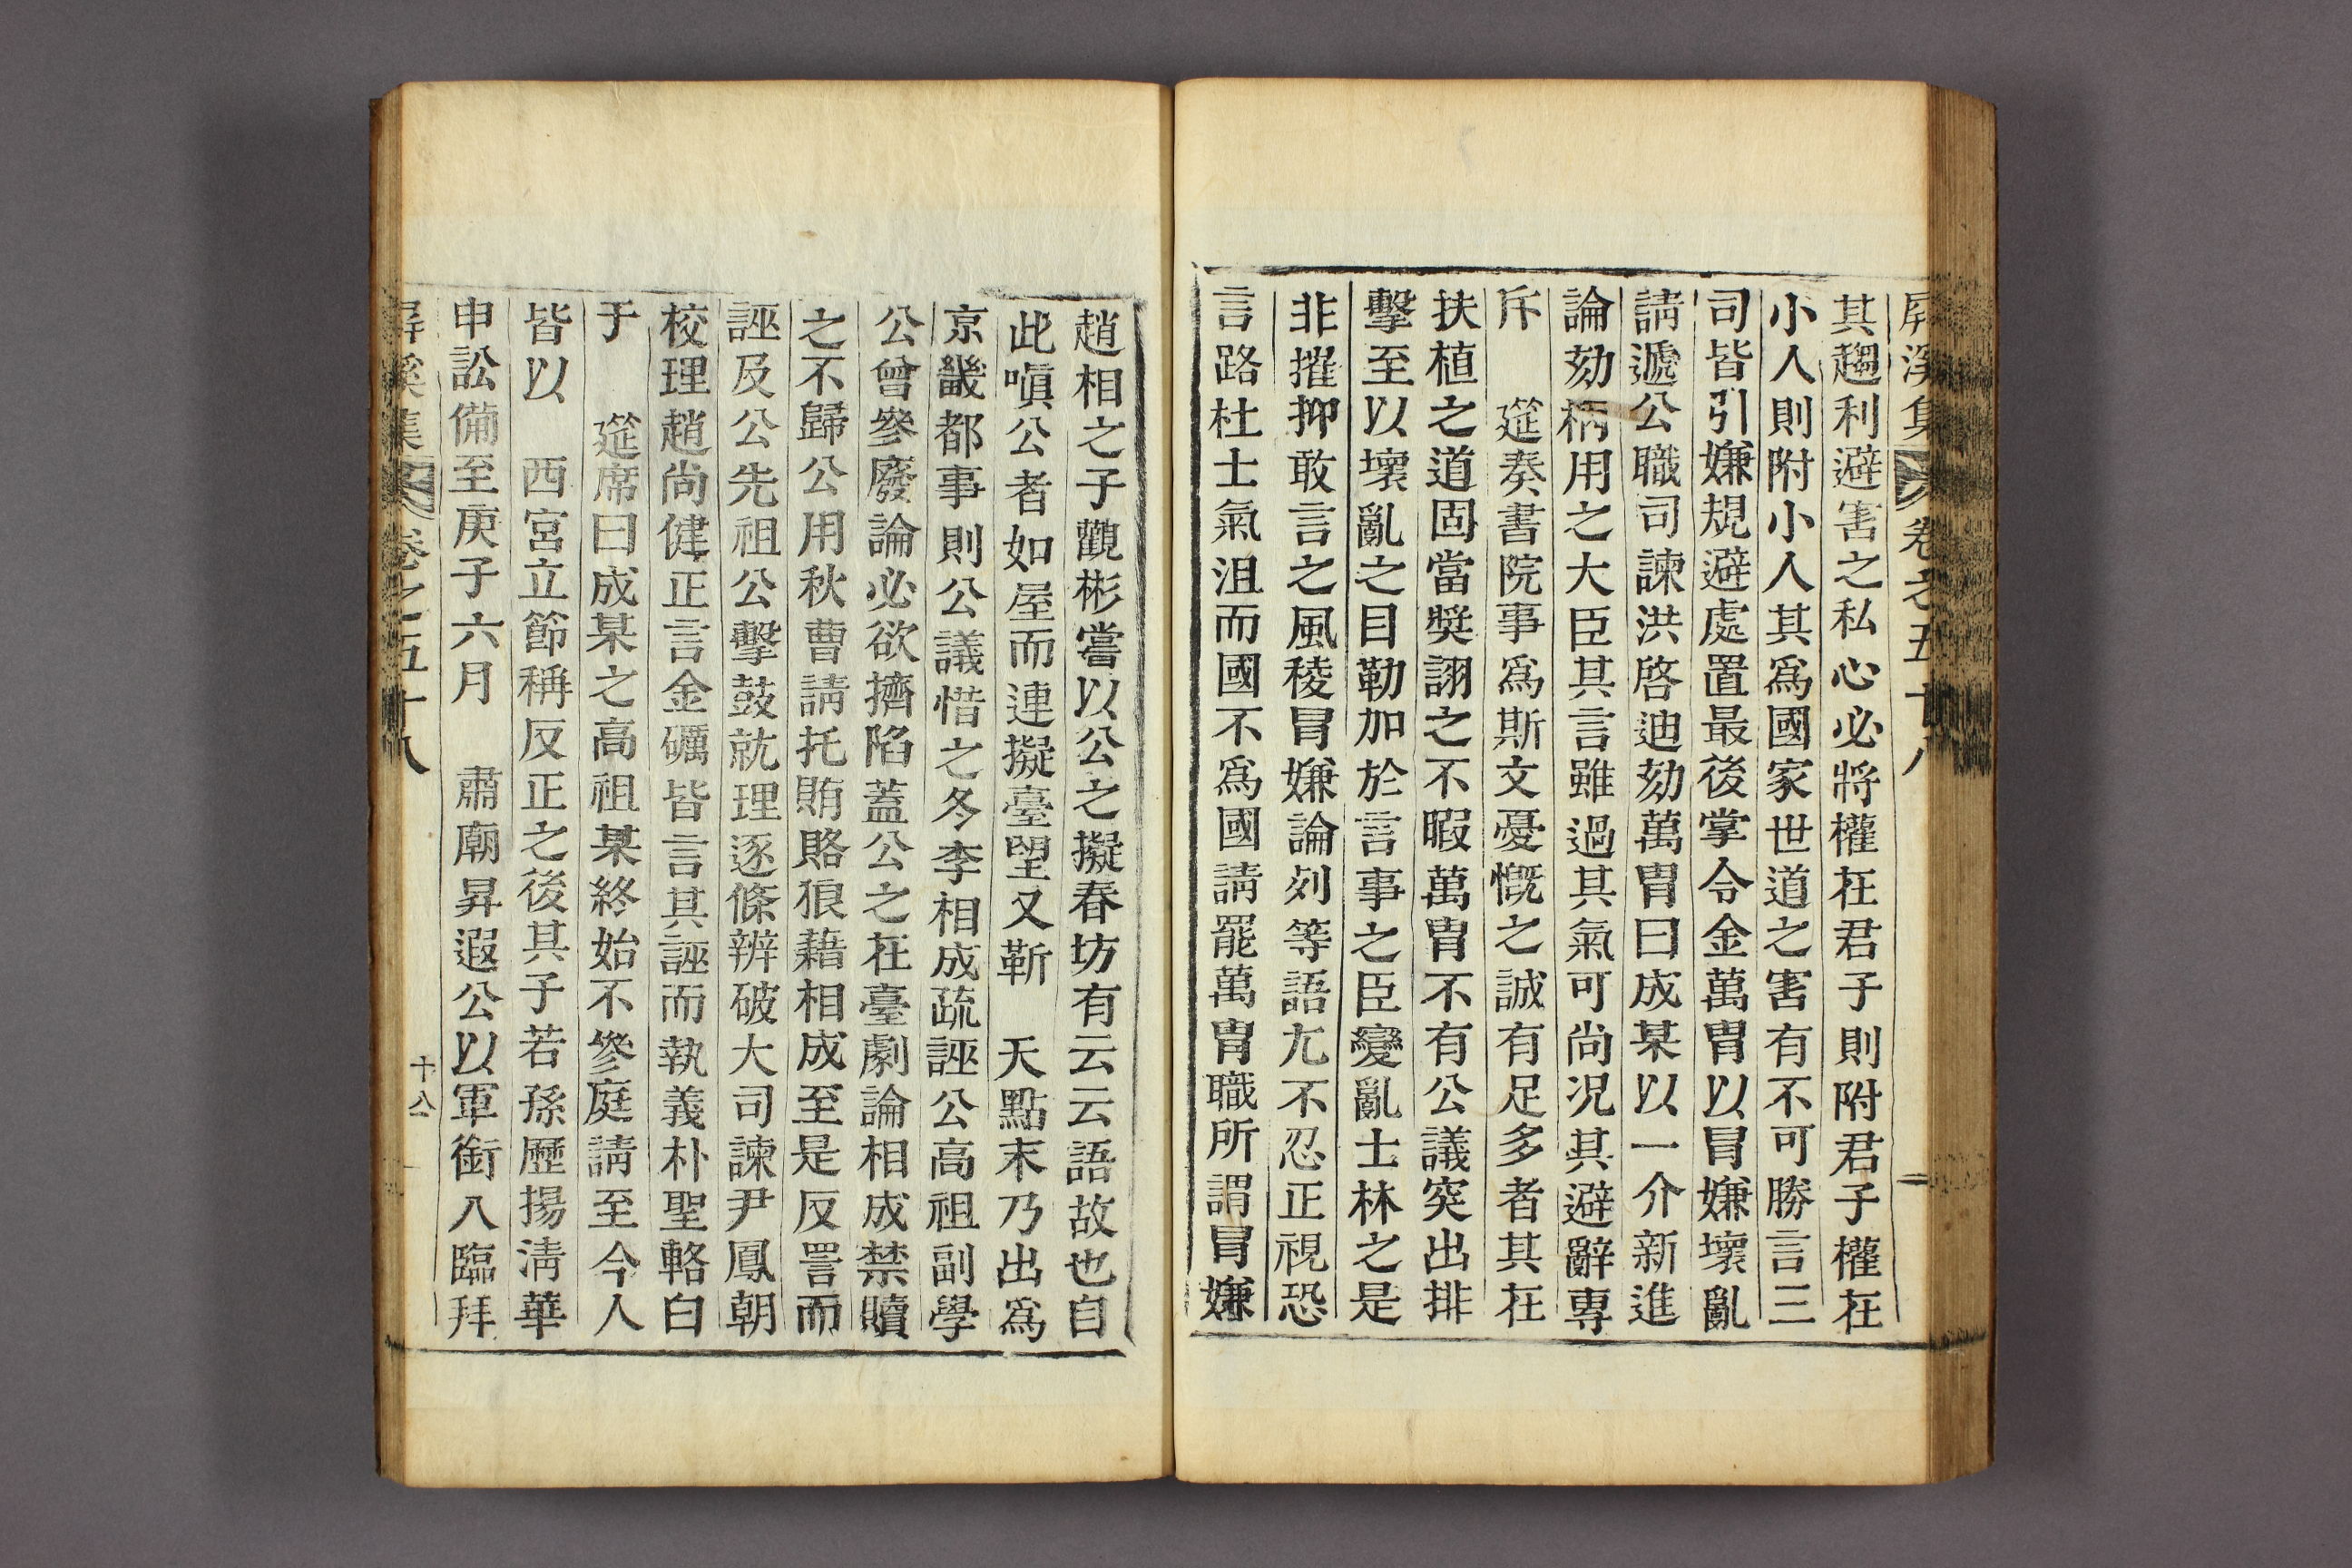 屏溪集 卷之五十八
其趨利避害之私心必將權在君子則附君子權在
小人則附小人其爲國家世道之害有不可勝言三
司皆引嫌規避處置最後掌令金萬胄以冒嫌壞亂
請遞公職司諫洪啓迪劾萬胄曰成某以一介新進
論劾柄用之大臣其言雖過其氣可尚况其避辭專
斥 筵奏書院事爲斯文憂慨之誠有足多者其在
扶植之道固當奬詡之不暇萬胄不有公議突出排
擊至以壞亂之目勒加於言事之臣變亂士林之是
非摧抑敢言之風稜冒嫌論列等語尤不忍正視恐
言路杜士氣沮而國不爲國請罷萬胄職所謂冒嫌
趙相之子觀彬嘗以公之擬春坊有云云語故也自
此嗔公者如屋而連擬臺望又靳 天點末乃出爲
京畿都事則公議惜之冬李相成疏誣公高祖副學
公曾參廢論必欲擠陷蓋公之在臺劇論相成禁贖
之不歸公用秋曹請托賄賂狼藉相成至是反詈而
誣及公先祖公擊鼓就理逐條辨破大司諫尹鳳朝
校理趙尚健正言金礪皆言其誣而執義朴聖輅白
于 筵席曰成某之高祖某終始不參庭請至今人
皆以 西宮立節稱反正之後其子若孫歷揚淸華
申訟備至庚子六月 肅廟昇遐公以軍銜入臨拜
屏溪集 卷之五十八
十八